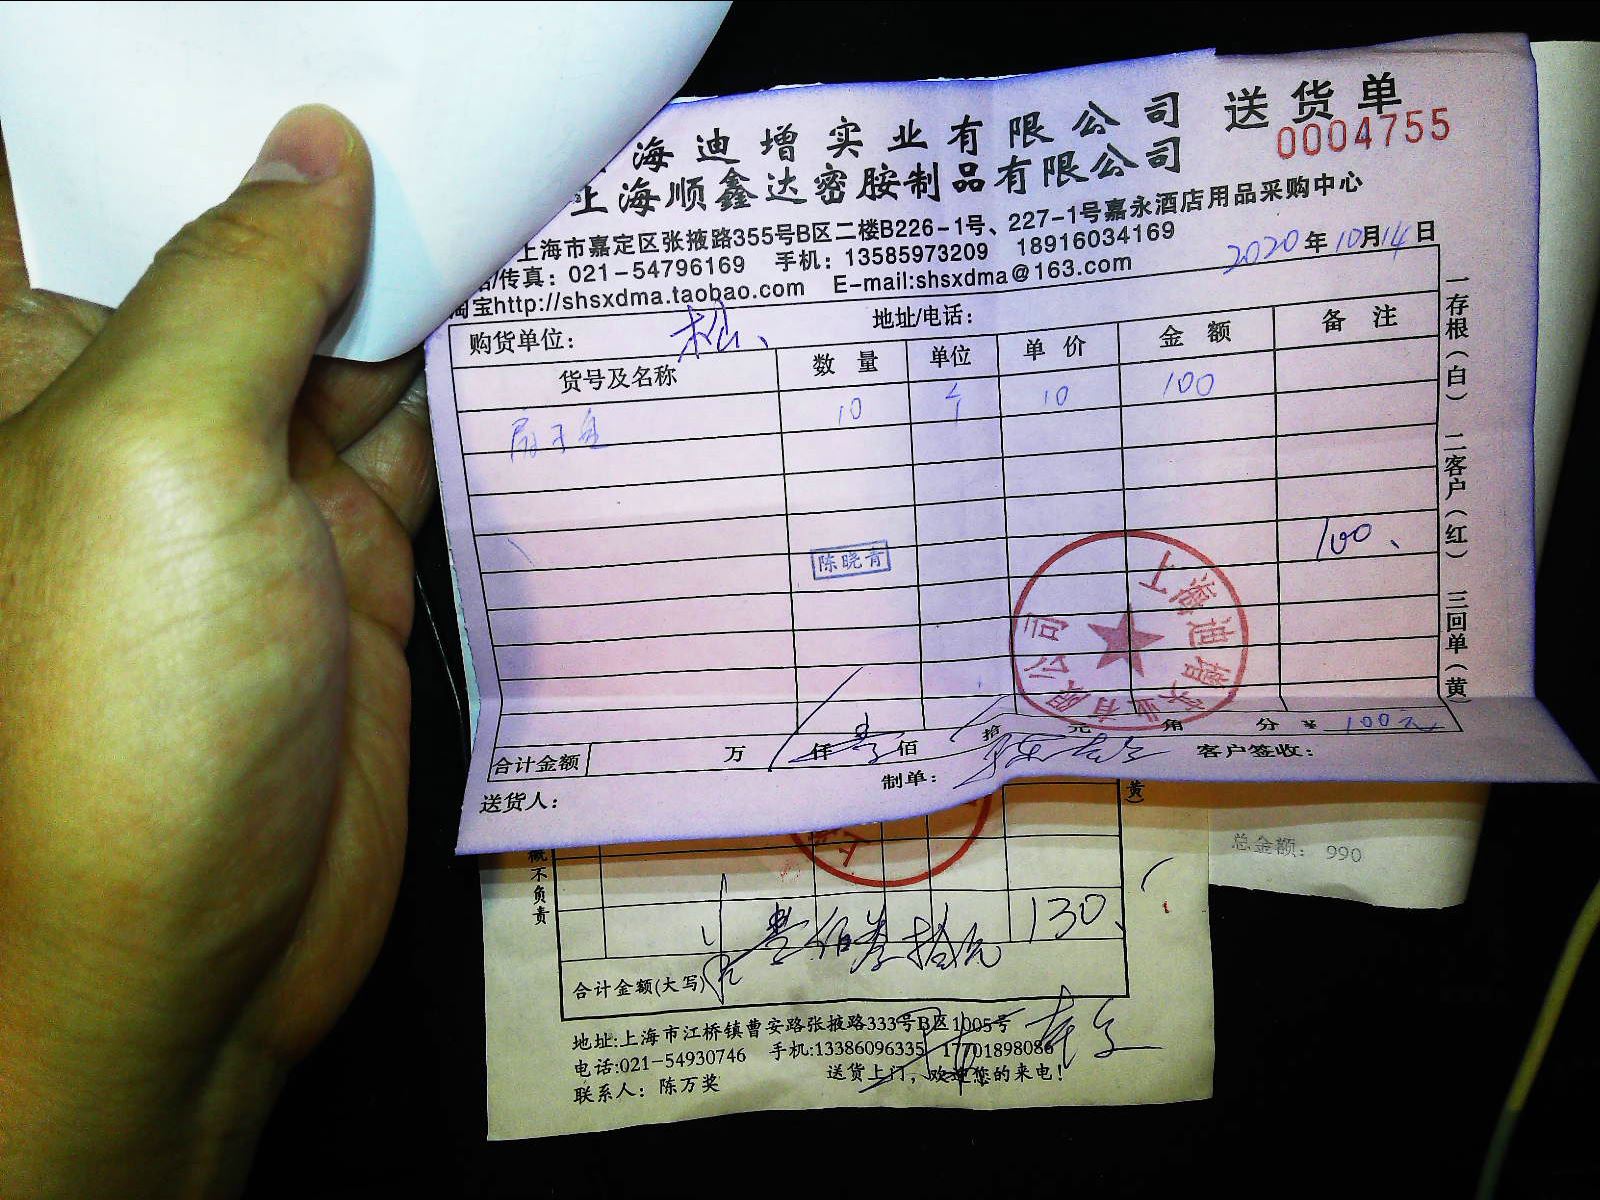 海迪增实业有限公司 送货单
上海顺鑫达密胺制品有限公司 0004755
上海市嘉定区张掖路355号B区二楼B226-1号、227-1号嘉永酒店用品采购中心
/传真：021-54796169 手机：13585973209 18916034169
淘宝http://shsxdma.taobao.com E-mail:shsxdma@163.com 2020年10月14日
购货单位： 地址/电话：
货号及名称 数量 单位 单价 金额 备注
10 个 10 100
100、
陈晓青
上海迪增实业有限公司
合计金额 万 仟 壹佰 拾 元 角 分 ¥ 100元
送货人： 制单： 客户签收：
一存根（白） 二客户（红） 三回单（黄）
黄）
总金额： 990
概不负责
130
合计金额(大写) 壹佰叁拾元
地址:上海市江桥镇曹安路张掖路333号B区1005号
电话:021-54930746 手机:13386096335 17701898086
联系人：陈万奖 送货上门，欢迎您的来电！